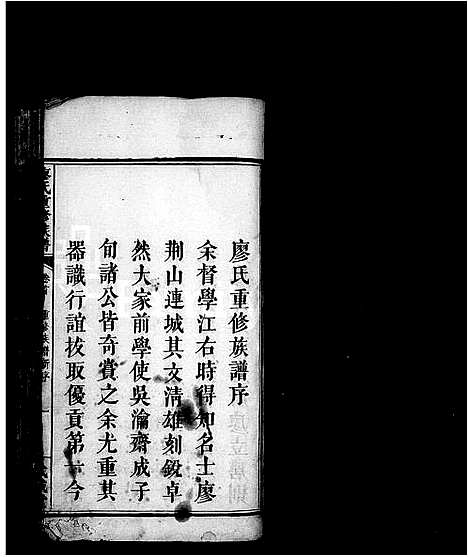 廖氏重修族譜序
余督學江右時得知名士廖
荆山連城其文清雄刻毅卓
然大家前學使吳瀹齋成子
旬諸公皆奇賞之余尤重其
器識行誼拔取優貢第 今
廖氏重修族譜
卷首
重修族譜新序